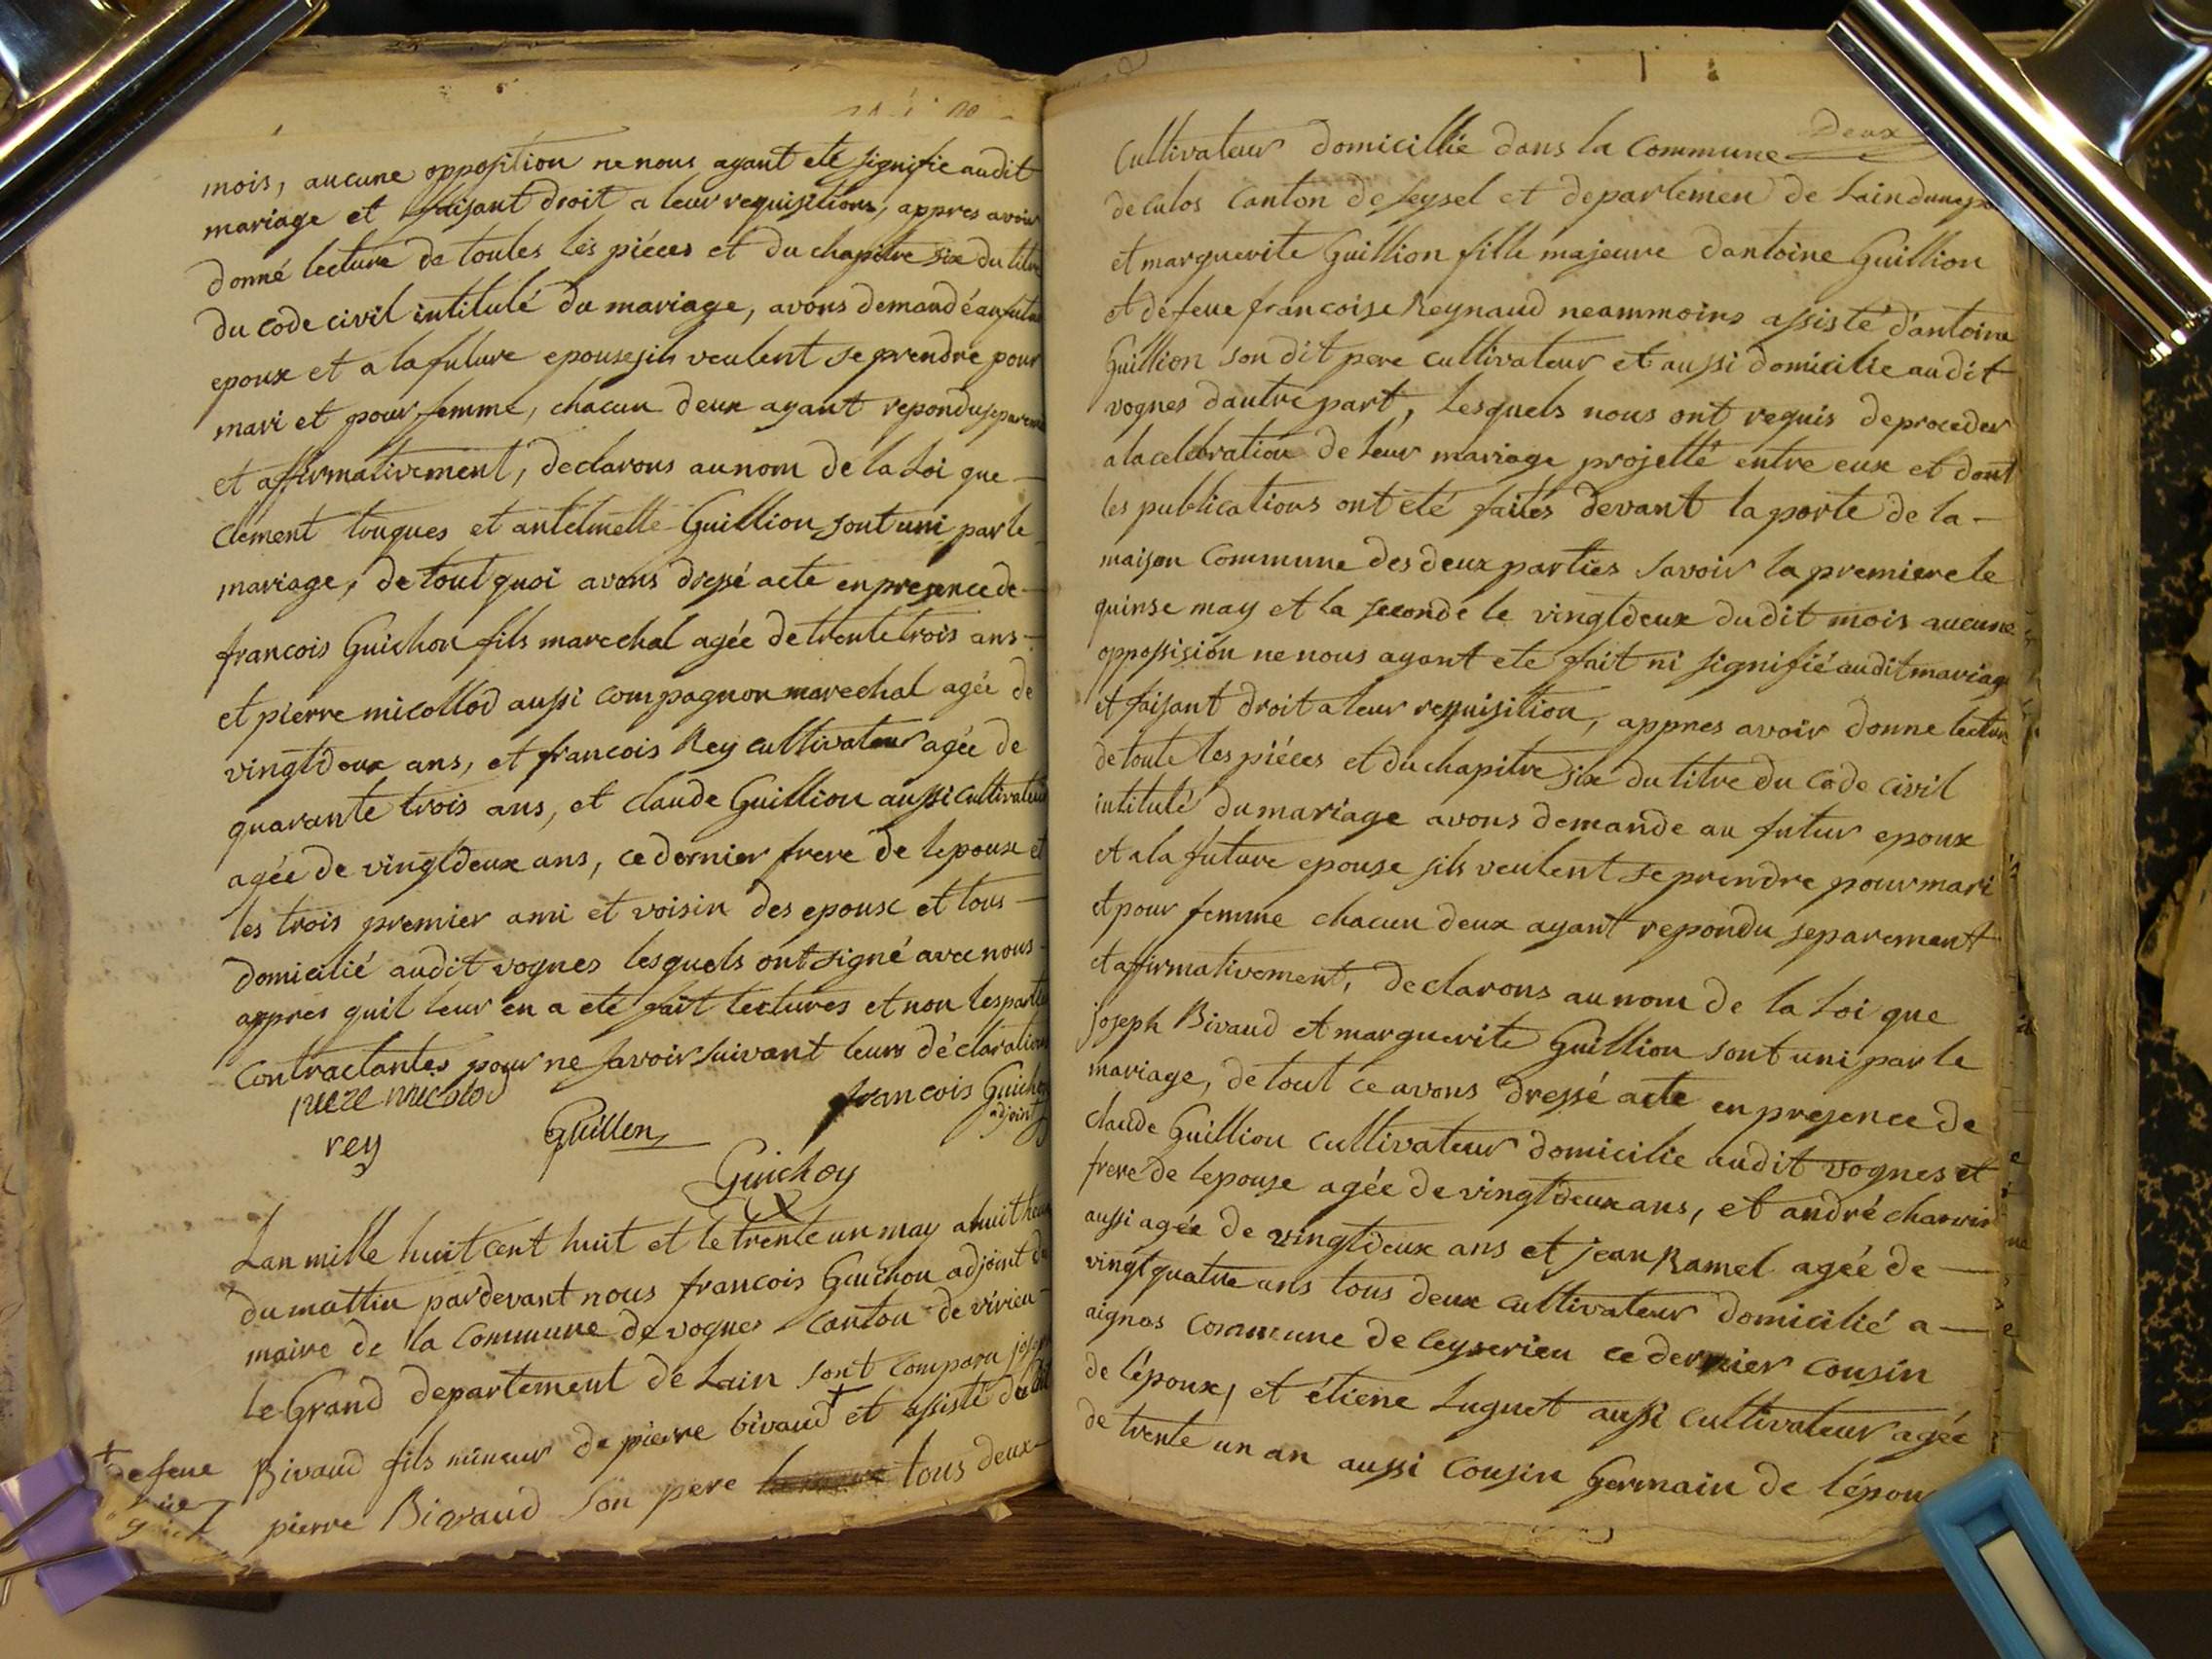 mois, aucune opposition ne nous ayant eté signifie audit
mariage et faisant droit a leur requisitions, appres avoir
donné lecture de toutes les piéces et du chapitre six du titre
du code civil intitulé du mariage, avons demandé au futur
epoux et a la future epouse sils veulent se prendre pour
mari et pour femme, chacun deux ayant repondu separem
et affirmativement, declarons au nom de la Loi que —
Clement touques et antelmette Guillion sont uni par le
mariage, de tout quoi avons dressé acte en presence de —
francois Guichon fils marechal agée de trente trois ans —
et pierre micollod aussi compagnon marechal agée de
vingtdeux ans, et francois Rey cultivateur agée de
quarante trois ans, et claude Guillion aussi cultivateur
agée de vingtdeux ans, ce dernier frere de lepouse et
les trois premier ami et voisin des epoux et tous —
domicilié audit vognes lesquels ont signé avec nous
appres quil leur en a eté fait lectures et non les partie
Contractantes pour ne savoir suivant leurs déclaration
pieere micolod
francois Guichon
adjoint
rey
Guillon
Guichon
Lan mille huit cent huit et le trente un may a huit heure
du mattin pardevant nous francois Guichon adjoint de
maire de la Commune de vognes canton de virieu —
Le Grand departement de Lain sont comparu joseph
Bivaud fils mineur de pierre bivaud + et assisté dudit
+ de feue
pierre Bivaud son pere tous deux —
Deux
Cultivateur domicillié dans la Commune —
de culos Canton de seysel et departemen de Lain dune part
et marguerite Guillion fille majeure dantoine Guillion
et de feue francoise Reynaud neammoins assisté d'antoine
Guillion son dit pere cultivateur et aussi domicilie audit
vognes dautre part, Lesquels nous ont requis de proceder
a la celebration de leur mariage projetté entre eux et dont
les publications ont eté faites devant la porte de la —
maison Commune des deux parties savoir la premiere le
quinse may et la seconde le vingtdeux dudit mois aucune
oppossision ne nous ayant ete fait ni signifié audit mariage
et faisant droit a leur requisition, appres avoir donne lecture
de toute les piéces et du chapitre six du titre du Code civil
intitulé du mariage avons demande au futur epoux
et a la future epouse sils veulent se prendre pour mari
et pour femme chacun deux ayant repondu separement
et affirmativement, declarons au nom de la Loi que
joseph Bivaud et marguerite Guillion sont uni par le
mariage, de tout ce avons dressé acte en presence de
claude Guillion cultivateur domicilie audit vognes et
frere de lepouse agée de vingtdeux ans, et andré charvin
aussi agée de vingtdeux ans et jean Ramel agée de —
vingt quatre ans tous deux cultivateur domicilié a —
aignos commune de Ceyserieu ce dernier cousin
de l'époux, et étiene Luguet aussi cultivateur agée
de trente un an aussi cousin Germain de l'époux